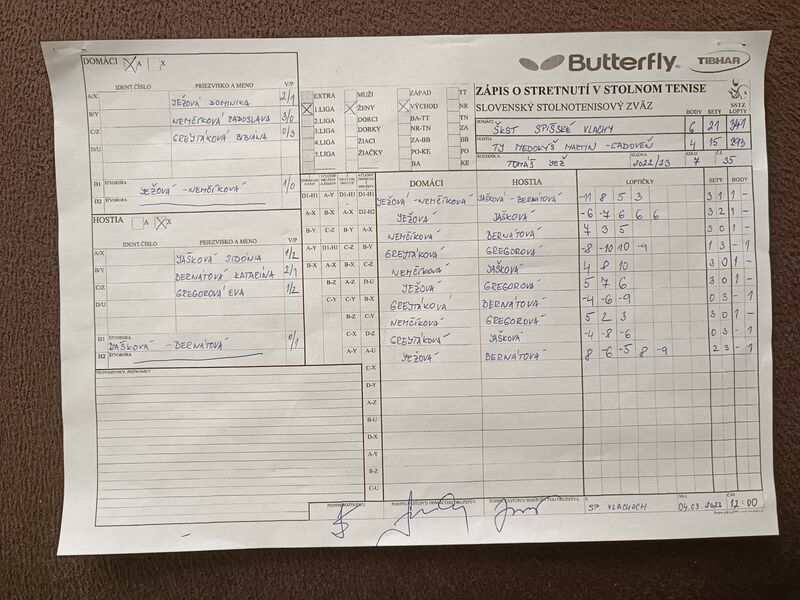 Butterfly TIBHAR
DOMÁCI A X
IDENT.ČÍSLO PRIEZVISKO A MENO V/P
A/X JEŽOVÁ DOMINIKA 2/1
B/Y NEMČÍKOVÁ RADOSLAVA 3/0
C/Z GREJTÁKOVÁ BIBIÁNA 0/3
D/U
D1 ŠTVORHRA JEŽOVÁ - NEMČÍKOVÁ 1/0
D2 ŠTVORHRA
HOSTIA A X
IDENT.ČÍSLO PRIEZVISKO A MENO V/P
A/X JAŠKOVÁ SIDÓNIA 1/2
B/Y BERNÁTOVÁ KATARÍNA 2/1
C/Z GREGOROVÁ EVA 1/2
D/U
H1 ŠTVORHRA JAŠKOVÁ - BERNÁTOVÁ 0/1
H2 ŠTVORHRA
PRIPOMIENKY, POZNÁMKY
EXTRA MUŽI ZÁPAD TT
1.LIGA ŽENY VÝCHOD NR
2.LIGA DORCI BA-TT TN
3.LIGA DORKY NR-TN ZA
4.LIGA ŽIACI ZA-BB BB
5.LIGA ŽIAČKY PO-KE PO
BA KE
ZÁPIS O STRETNUTÍ V STOLNOM TENISE
SLOVENSKÝ STOLNOTENISOVÝ ZVÄZ SSTZ
BODY SETY LOPTY
DOMÁCI ŠKST SPIŠSKÉ VLACHY 6 21 341
HOSTIA TJ MEDOKÝŠ MARTIN - ĽADOVEŇ 4 15 293
ROZHODCA TOMÁŠ JEŽ SEZÓNA 2022/23 KOLO 7 Č.Z. 35
DOMÁCI HOSTIA LOPTIČKY SETY BODY
D1-H1 A-Y D1-H1 D1-H1 JEŽOVÁ - NEMČÍKOVÁ JAŠKOVÁ - BERNÁTOVÁ -11 8 5 3 3 1 1 -
A-X B-X A-X D2-H2 JEŽOVÁ JAŠKOVÁ -6 -7 6 6 6 3 2 1 -
B-Y C-Z B-Y A-X NEMČÍKOVÁ BERNÁTOVÁ 7 3 5 3 0 1 -
A-Y D1-H1 C-Z B-Y GREJTÁKOVÁ GREGOROVÁ -8 -10 10 -9 1 3 - 1
B-X A-X B-X C-Z NEMČÍKOVÁ JAŠKOVÁ 4 8 10 3 0 1 -
B-Z A-Z D-U JEŽOVÁ GREGOROVÁ 5 7 6 3 0 1 -
C-Y C-Y B-X GREJTÁKOVÁ BERNÁTOVÁ -4 -6 -9 0 3 - 1
B-Z C-Y NEMČÍKOVÁ GREGOROVÁ 5 2 3 3 0 1 -
C-X D-Z GREJTÁKOVÁ JAŠKOVÁ -4 -8 -6 0 3 - 1
A-Y A-U JEŽOVÁ BERNÁTOVÁ 8 -6 -5 8 -9 2 3 - 1
C-X
D-Y
A-Z
B-U
D-X
A-Y
B-Z
C-U
PODPIS ROZHODCU PODPIS ZÁSTUPCU DOMÁCEHO DRUŽSTVA PODPIS ZÁSTUPCU HOSŤUJÚCEHO DRUŽSTVA V SP. VLACHOCH DŇA 04.03.2023 ČAS 12:00